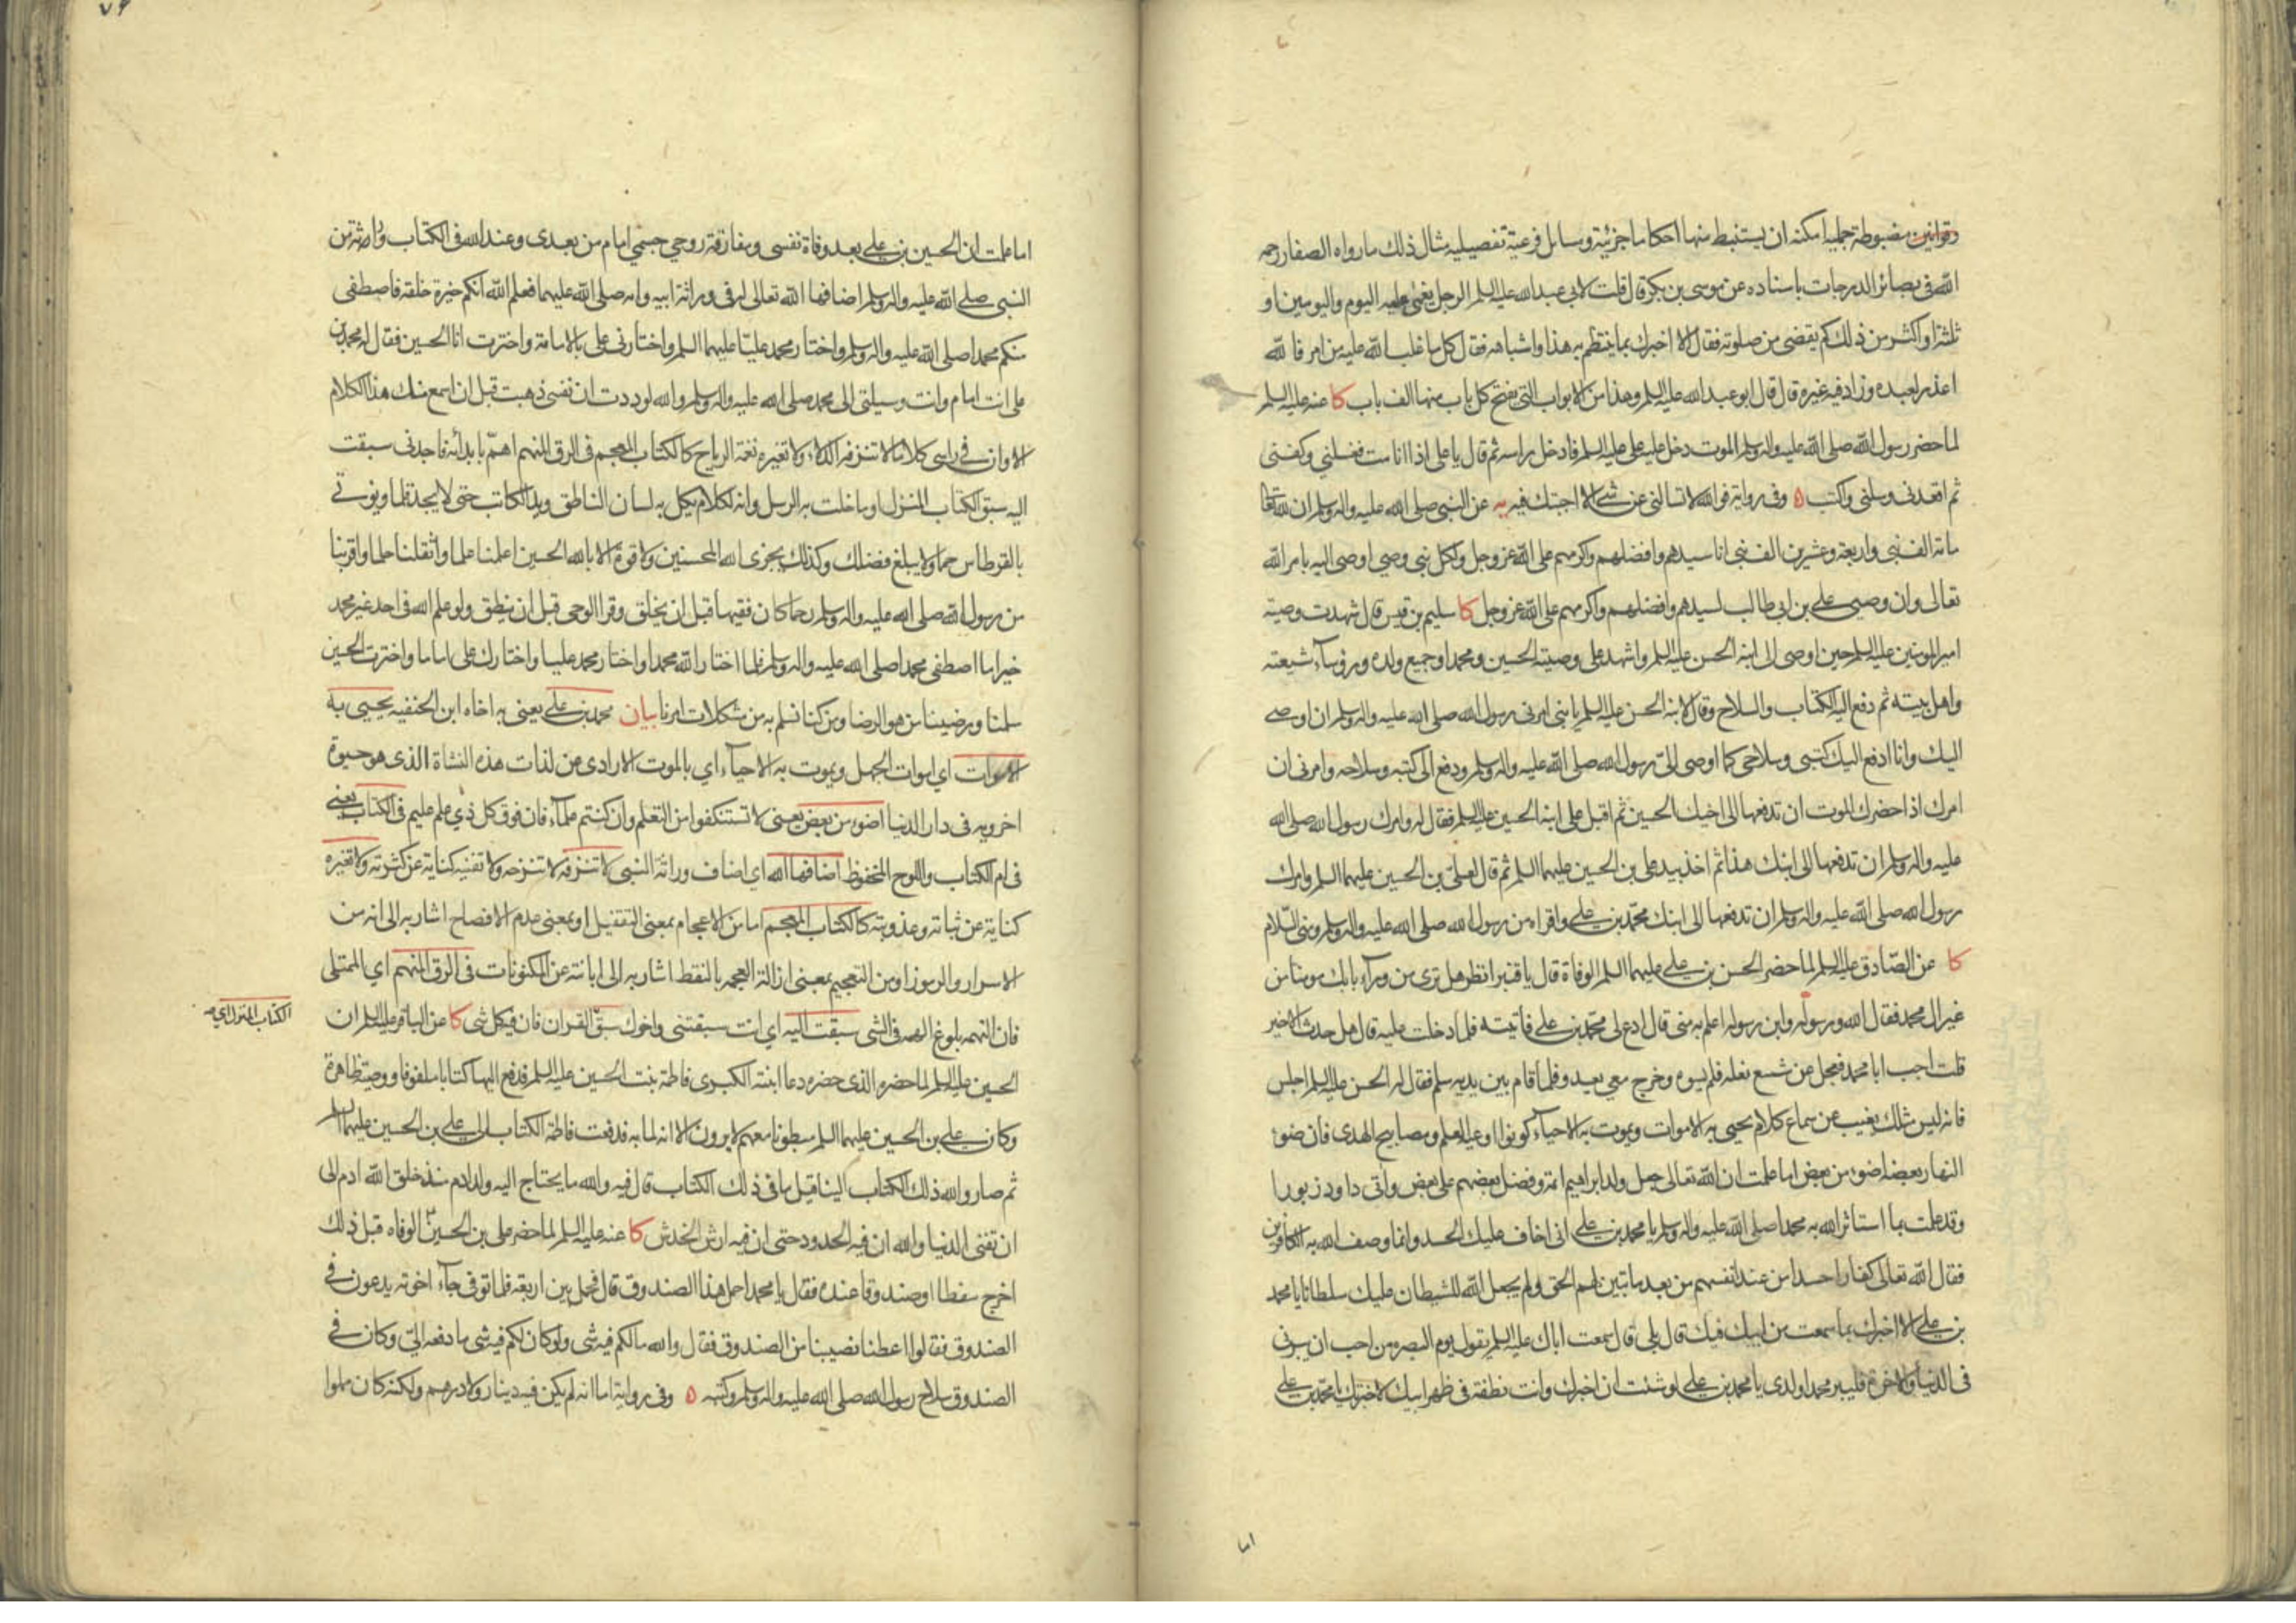 وقوانين مضبوطة جملية امكنه ان يستنبط منها احكاما جزئية ومسايل فرعية تفصيليه مثال ذلك ما رواه الصفار رحمه
الله في بصائر الدرجات باسناده عن موسى بن بكر قال قلت لابي عبد الله عليه السلم الرجل يغمى عليه اليوم واليومين او
ثلثة او اكثر من ذلك كم يقضى من صلوته فقال الا اخبرك بما ينتظم به هذا واشباهه فقال كل ما غلب الله عليه من امر فالله
اعذر لعبده وزاد فيه غيره قال قال ابو عبد الله عليه السلم وهذا من الابواب التي يفتح كل باب منها الف باب كا عنه عليه السلم
لما حضر رسول الله صلى الله عليه واله وسلم الموت دخل عليه علي عليه السلم فادخل راسه ثم قال يا علي اذا انا مت فغسلني وكفني
ثم اقعدنى وسلنى واكتب ه وفي رواية فوالله لا تسالني عن شي الا اجبتك فيه يه عن النبي صلى الله عليه واله وسلم ان لله تعالى
مائة الف نبي واربعة وعشرين الف نبي انا سيدهم وافضلهم واكرمهم على الله عز وجل ولكل نبي وصي اوصى اليه بامر الله
تعالى وان وصيي علي بن ابي طالب لسيدهم وافضلهم واكرمهم على الله عز وجل كا سليم بن قيس قال شهدت وصية
امير المومنين عليه السلم حين اوصى الى ابنه الحسن عليه السلم واشهد على وصيته الحسين ومحمدا وجميع ولده ورؤساء شيعته
واهل بيته ثم دفع اليه الكتاب والسلاح وقال لابنه الحسن عليه السلم يا بني امرني رسول الله صلى الله عليه واله وسلم ان اوصي
اليك وان ادفع اليك كتبي وسلاحي كما اوصى الي رسول الله صلى الله عليه واله وسلم ودفع الي كتبه وسلاحه وامرني ان
امرك اذا حضرك الموت ان تدفعها الى اخيك الحسين ثم اقبل على ابنه الحسين عليه السلم فقال له وامرك رسول الله صلى الله
عليه واله وسلم ان تدفعها الى ابنك هذا ثم اخذ بيد علي بن الحسين عليهما السلم ثم قال لعلي بن الحسين عليهما السلم وامرك
رسول الله صلى الله عليه واله وسلم ان تدفعها الى ابنك محمد بن علي واقراه من رسول الله صلى الله عليه واله وسلم ومني السلام
كا عن الصادق عليه السلم لما حضر الحسن بن علي عليهما السلم الوفاة قال يا قنبر انظر هل ترى من وراء بابك مومنا من
غير ال محمد فقال الله ورسوله وابن رسوله اعلم به مني قال ادع لي محمد بن علي فاتيته فلما دخلت عليه قال هل حدث الا خير
قلت اجب ابا محمد فعجل عن شسع نعله فلم يسوه وخرج معي يعدو فلما قام بين يديه سلم فقال له الحسن عليه السلم اجلس
فانه ليس مثلك يغيب عن سماع كلام يحيى به الاموات ويموت به الاحياء كونوا اوعية العلم ومصابيح الهدى فان ضوء
النهار بعضه اضوء من بعض اما علمت ان الله تعالى جعل ولد ابراهيم ائمة وفضل بعضهم على بعض واتى داود زبورا
وقد علمت بما استاثر الله به محمدا صلى الله عليه واله وسلم يا محمد بن علي اني اخاف عليك الحسد وانما وصف الله به الكافرين
فقال الله تعالى كفارا حسدا من عند انفسهم من بعد ما تبين لهم الحق ولم يجعل الله للشيطان عليك سلطانا يا محمد
بن علي الا اخبرك بما سمعت من ابيك فيك قال بلى قال سمعت اباك عليه السلم يقول يوم البصره من احب ان يبرني
في الدنيا والاخرة فليبر محمدا ولدي يا محمد بن علي لو شئت ان اخبرك وانت نطفة في ظهر ابيك لاخبرتك يا محمد بن علي
اما علمت ان الحسين بن علي بعد وفاة نفسي ومفارقة روحي جسمي امام من بعدى وعند الله في الكتاب وراثة من
النبي صلى الله عليه واله وسلم اضافها الله تعالى له في وراثة ابيه وامه صلى الله عليهما فعلم الله انكم خيرة خلقه فاصطفى
منكم محمدا صلى الله عليه واله وسلم واختار محمد عليا عليهما السلم واختارني علي بالامامة واخترت انا الحسين فقال له محمد بن
علي انت امام وانت وسيلتي الى محمد صلى الله عليه واله وسلم والله لوددت ان نفسي ذهبت قبل ان اسمع منك هذا الكلام
الا وان في راسي كلاما لا تنزفه الدلاء ولا تغيره نغمة الرياح كالكتاب المعجم في الرق المنهم اهم بابدائه فاجدنى سبقت
اليه سبق الكتاب المنزل او ما خلت به الرسل وانه لكلام يكل به لسان الناطق ويد الكاتب حتى لا يجد قلما ويوتى
بالقرطاس حمما ولا يبلغ فضلك وكذلك يجزى الله المحسنين ولا قوة الا بالله الحسين اعلمنا علما واثقلنا حلما واقربنا
من رسول الله صلى الله عليه واله وسلم رحما كان فقيها قبل ان يخلق وقرا الوحي قبل ان ينطق ولو علم الله في احد غير محمد
خيرا ما اصطفى محمدا صلى الله عليه واله وسلم فلما اختار الله محمدا واختار محمد عليا واختارك علي اماما واخترت الحسين
سلمنا ورضينا من هو الرضا ومن كنا نسلم به من مشكلات امرنا بيان محمد بن علي يعني به اخاه ابن الحنفيه يحيى به
الاموات اي اموات الجهل ويموت به الاحياء اي بالموت الارادي عن لذات هذه النشاة الذي هو حيوة
اخرويه في دار الدنيا اضوء من بعض يعني لا تستنكفوا من التعلم وان كنتم علماء فان فوق كل ذي علم عليم في الكتاب يعني
في ام الكتاب واللوح المحفوظ اضافها الله اي اضاف وراثة النبي لا تنزفه لا تنزحه ولا تفنيه كناية عن كثرته ولا تغيره
كناية عن ثباته وعذوبته كالكتاب المعجم اما من الاعجام بمعنى التقفيل او بمعنى عدم الافصاح اشار به الى انه من
الاسرار والرموز او من التعجيم بمعنى ازالة العجمه بالنقط اشار به الى ابانته عن المكنونات في الرق المنهم اي الممتلى
فان النهمه بلوغ الهمه في الشي سبقت اليه اي انت سبقتني واخوك سبق القران فان فيه كل شي كا عن الباقر عليه السلم ان
الكتاب المنزل اي
الحسين عليه السلم لما حضره الذي حضره دعا ابنته الكبرى فاطمة بنت الحسين عليه السلم فدفع اليها كتابا ملفوفا ووصية ظاهرة
وكان علي بن الحسين عليهما السلم مبطونا معهم لا يرون الا انه لما به فدفعت فاطمة الكتاب الى علي بن الحسين عليهما السلم
ثم صار والله ذلك الكتاب الينا قيل ما في ذلك الكتاب قال فيه والله ما يحتاج اليه ولد ادم منذ خلق الله ادم الى
ان تفنى الدنيا والله ان فيه الحدود حتى ان فيه ارش الخدش كا عنه عليه السلم لما حضر علي بن الحسين الوفاه قبل ذلك
اخرج سفطا او صندوقا عنده فقال يا محمد احمل هذا الصندوق قال فحمل بين اربعة فلما توفي جاء اخوته يدعون في
الصندوق فقالوا اعطنا نصيبنا من الصندوق فقال والله ما لكم فيه شي ولو كان لكم فيه شي ما دفعه الي وكان في
الصندوق سلاح رسول الله صلى الله عليه واله وسلم وكتبه ه وفي رواية اما انه لم يكن فيه دينار ولا درهم ولكنه كان مملوا